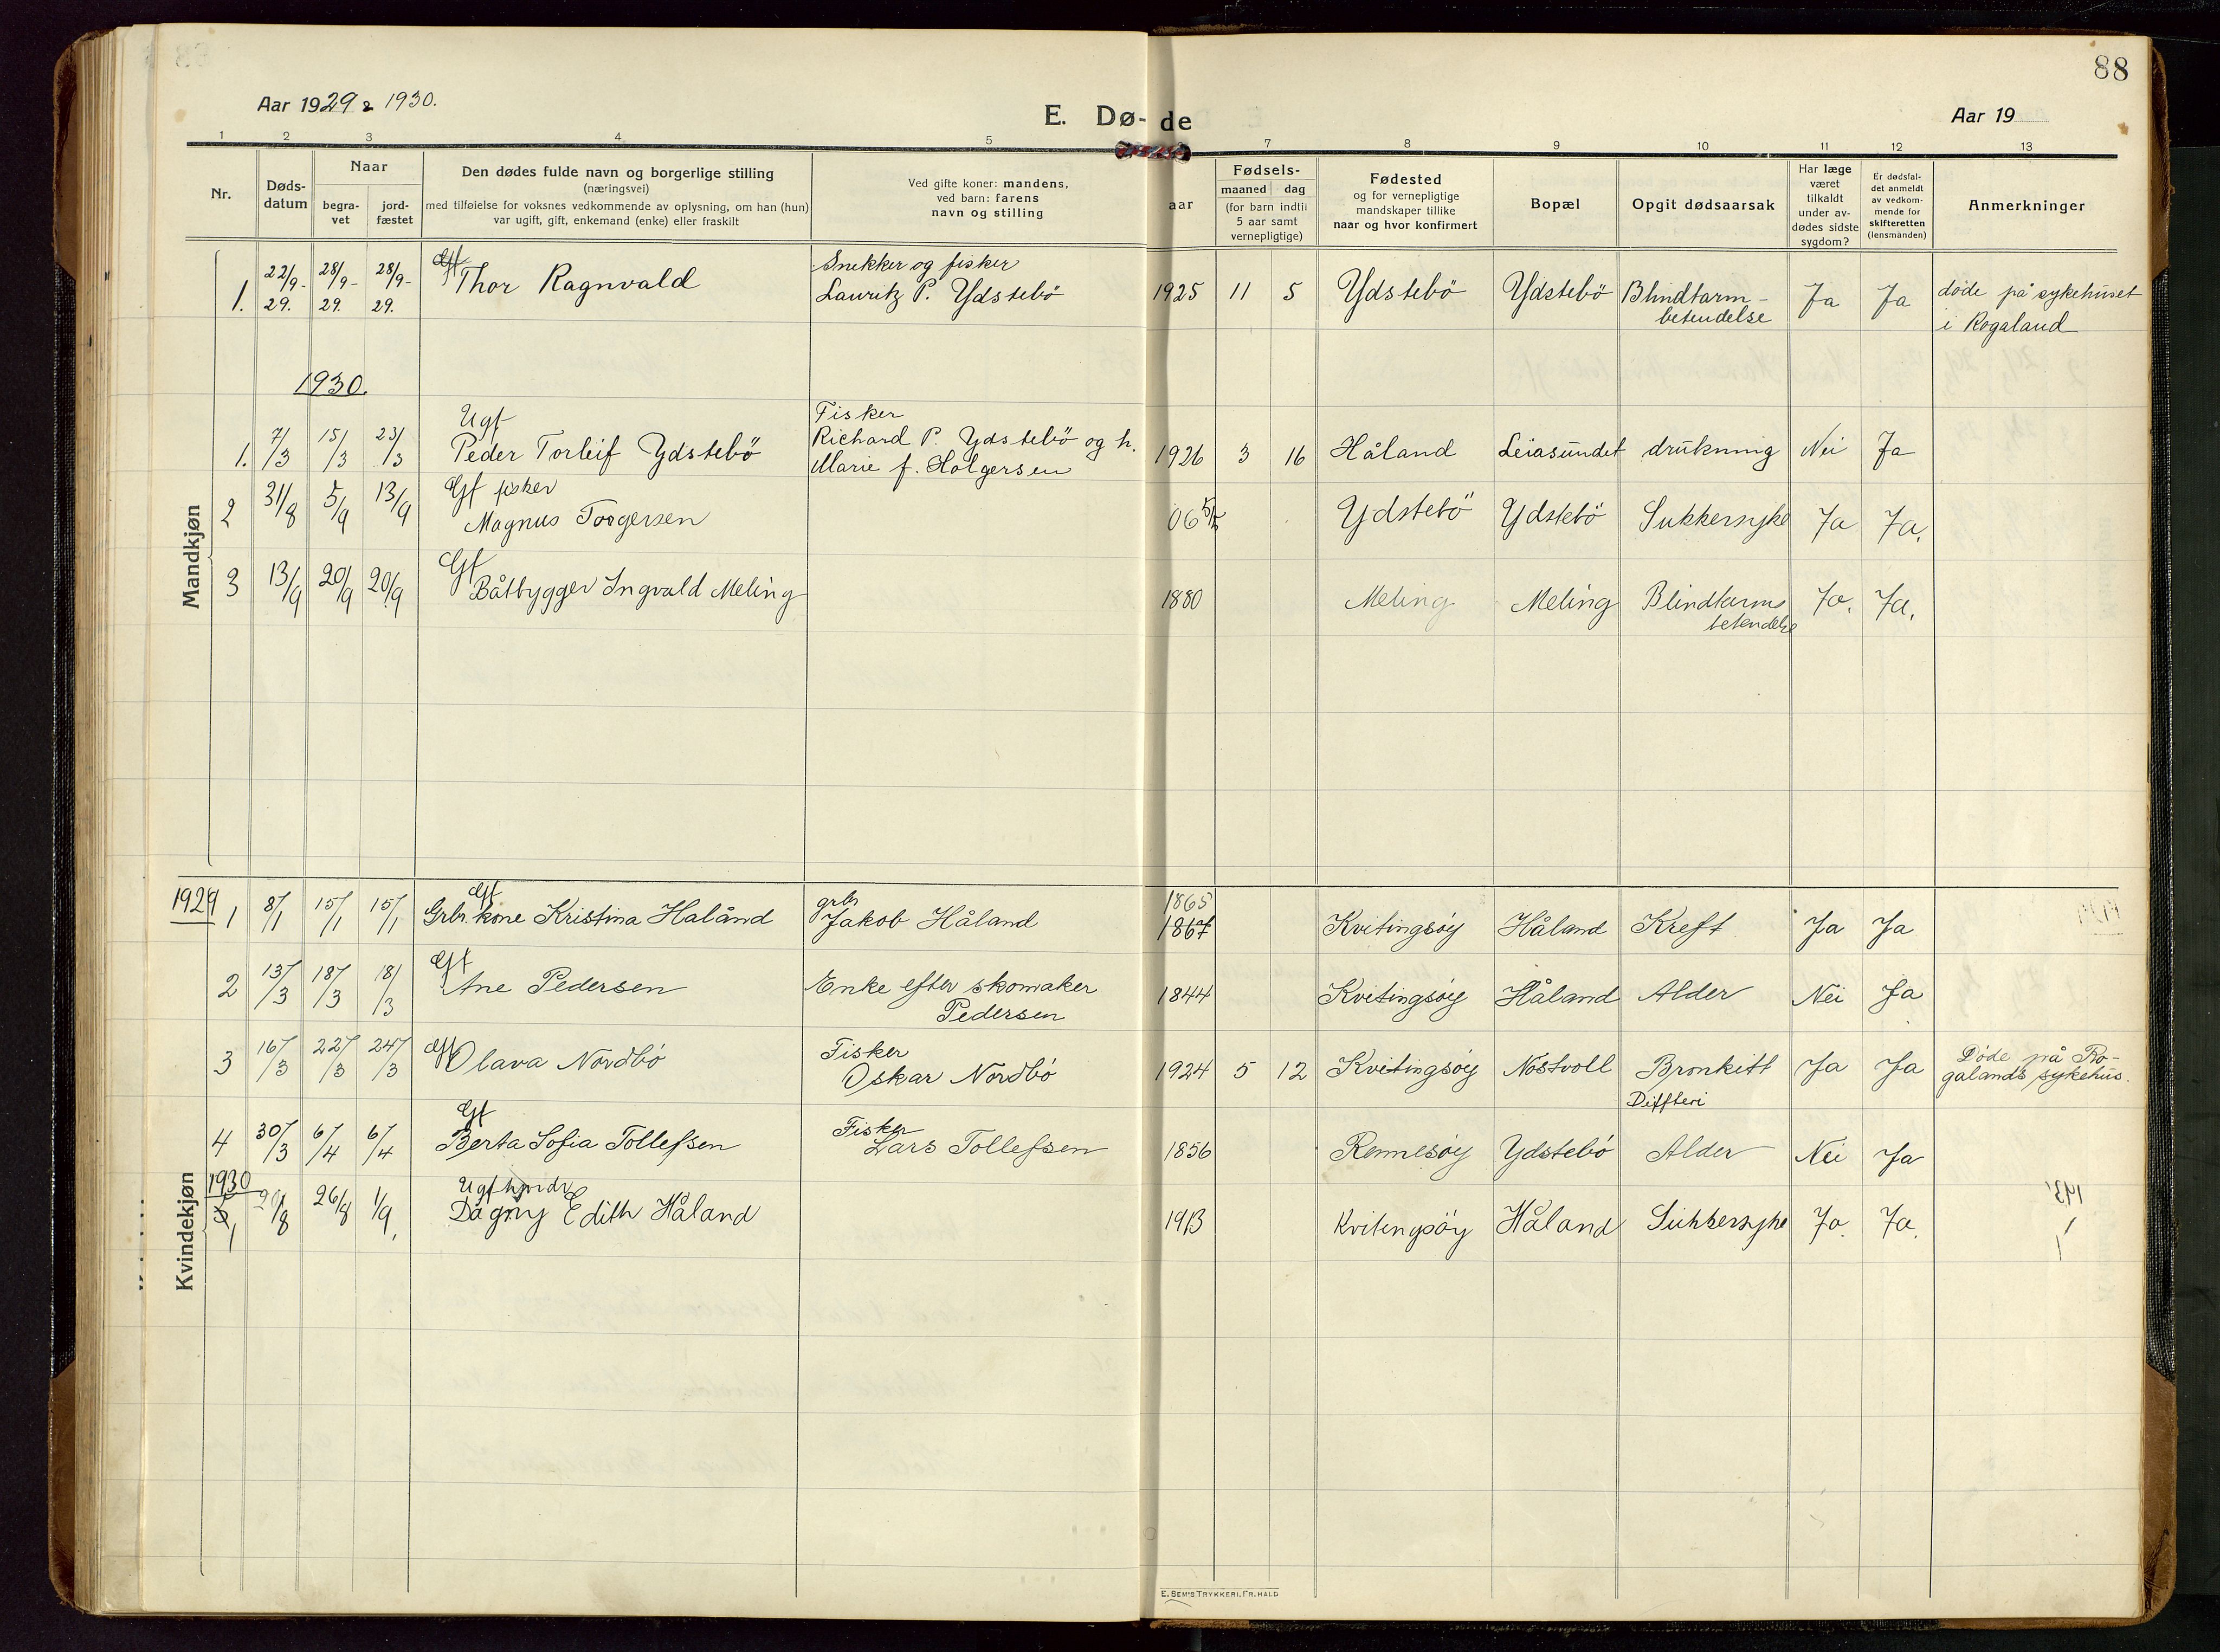 88
Aar 1929 & 1930.
E. Dø- de
Aar 19
1 2 3 4 5 7 8 9 10 11 12 13
Nr.
Døds-
datum
Naar
begra-
vet
jord-
fæstet
Den dødes fulde navn og borgerlige stilling
(næringsvei)
med tilføielse for voksnes vedkommende av oplysning, om han (hun)
var ugift, gift, enkemand (enke) eller fraskilt
Ved gifte koner: mandens,
ved barn: farens
navn og stilling
aar
Fødsels-
maaned dag
(for barn indtil
5 aar samt
vernepligtige)
Fødested
og for vernepligtige
mandskaper tillike
naar og hvor konfirmert
Bopæl
Opgit dødsaarsak
Har læge
været
tilkaldt
under av-
dødes sidste
sygdom?
Er dødsfal-
det anmeldt
av vedkom-
mende for
skifteretten
(lensmanden)
Anmerkninger
Mandkjøn
1. 22/9- 29. 28/9- 29. 28/9- 29. Thor Ragnvald
Snekker og fisker
Lauritz P. Ydstebö
1925 11 5 Ydstebö Ydstebö Blindtarm-
betendelse
Ja Ja
døde på sykehuset
i Rogaland
1930.
Ugf
1. 7/3 15/3 23/3 Peder Torleif Ydstebö
Fisker
Richard P. Ydstebö og h.
Marie f. Holgersen
1926 3 16 Håland Leiasundet drukning Nei Ja
Gf fisker
2 31/8 5/9 13/9 Magnus Torgersen
06 5/5 Ydstebö Ydstebö Sukkersyke Ja Ja.
Gf
3 13/9 20/9 20/9 Båtbygger Ingvald Meling
1880 Meling Meling Blindtarms
betendelse
Ja. Ja.
Kvindekjøn
1929
Gf
1 8/1 15/1 15/1 Grbr. kone Kristina Haland
grbr
Jakob Håland
1865
1867 Kvitingsøy Håland Kreft Ja Ja
Gf
2 13/3 18/3 18/3 Ane Pedersen
Enke efter skomaker
Pedersen
1844 Kvitingsøy Håland Alder Nei Ja
3 16/3 22/3 24/3 Olava Nordbö
Fisker
Oskar Nordbö
1924 5 12 Kvitingsøy Nostvoll Bronkitt
Diffteri
Ja Ja
Døde på Ro-
galands sykehus.
Gf
4 30/3 6/4 6/4 Berta Sofia Tollefsen
Fisker
Lars Tollefsen
1856 Rennesøy Ydstebö Alder Nei Ja
1930
Ugf
1 20/8 26/8 1/9. Dagny Edith Håland
1913 Kvitingsöy Håland Sukkersyke Ja. Ja.
E. SEM'S TRYKKERI, FR.HALD